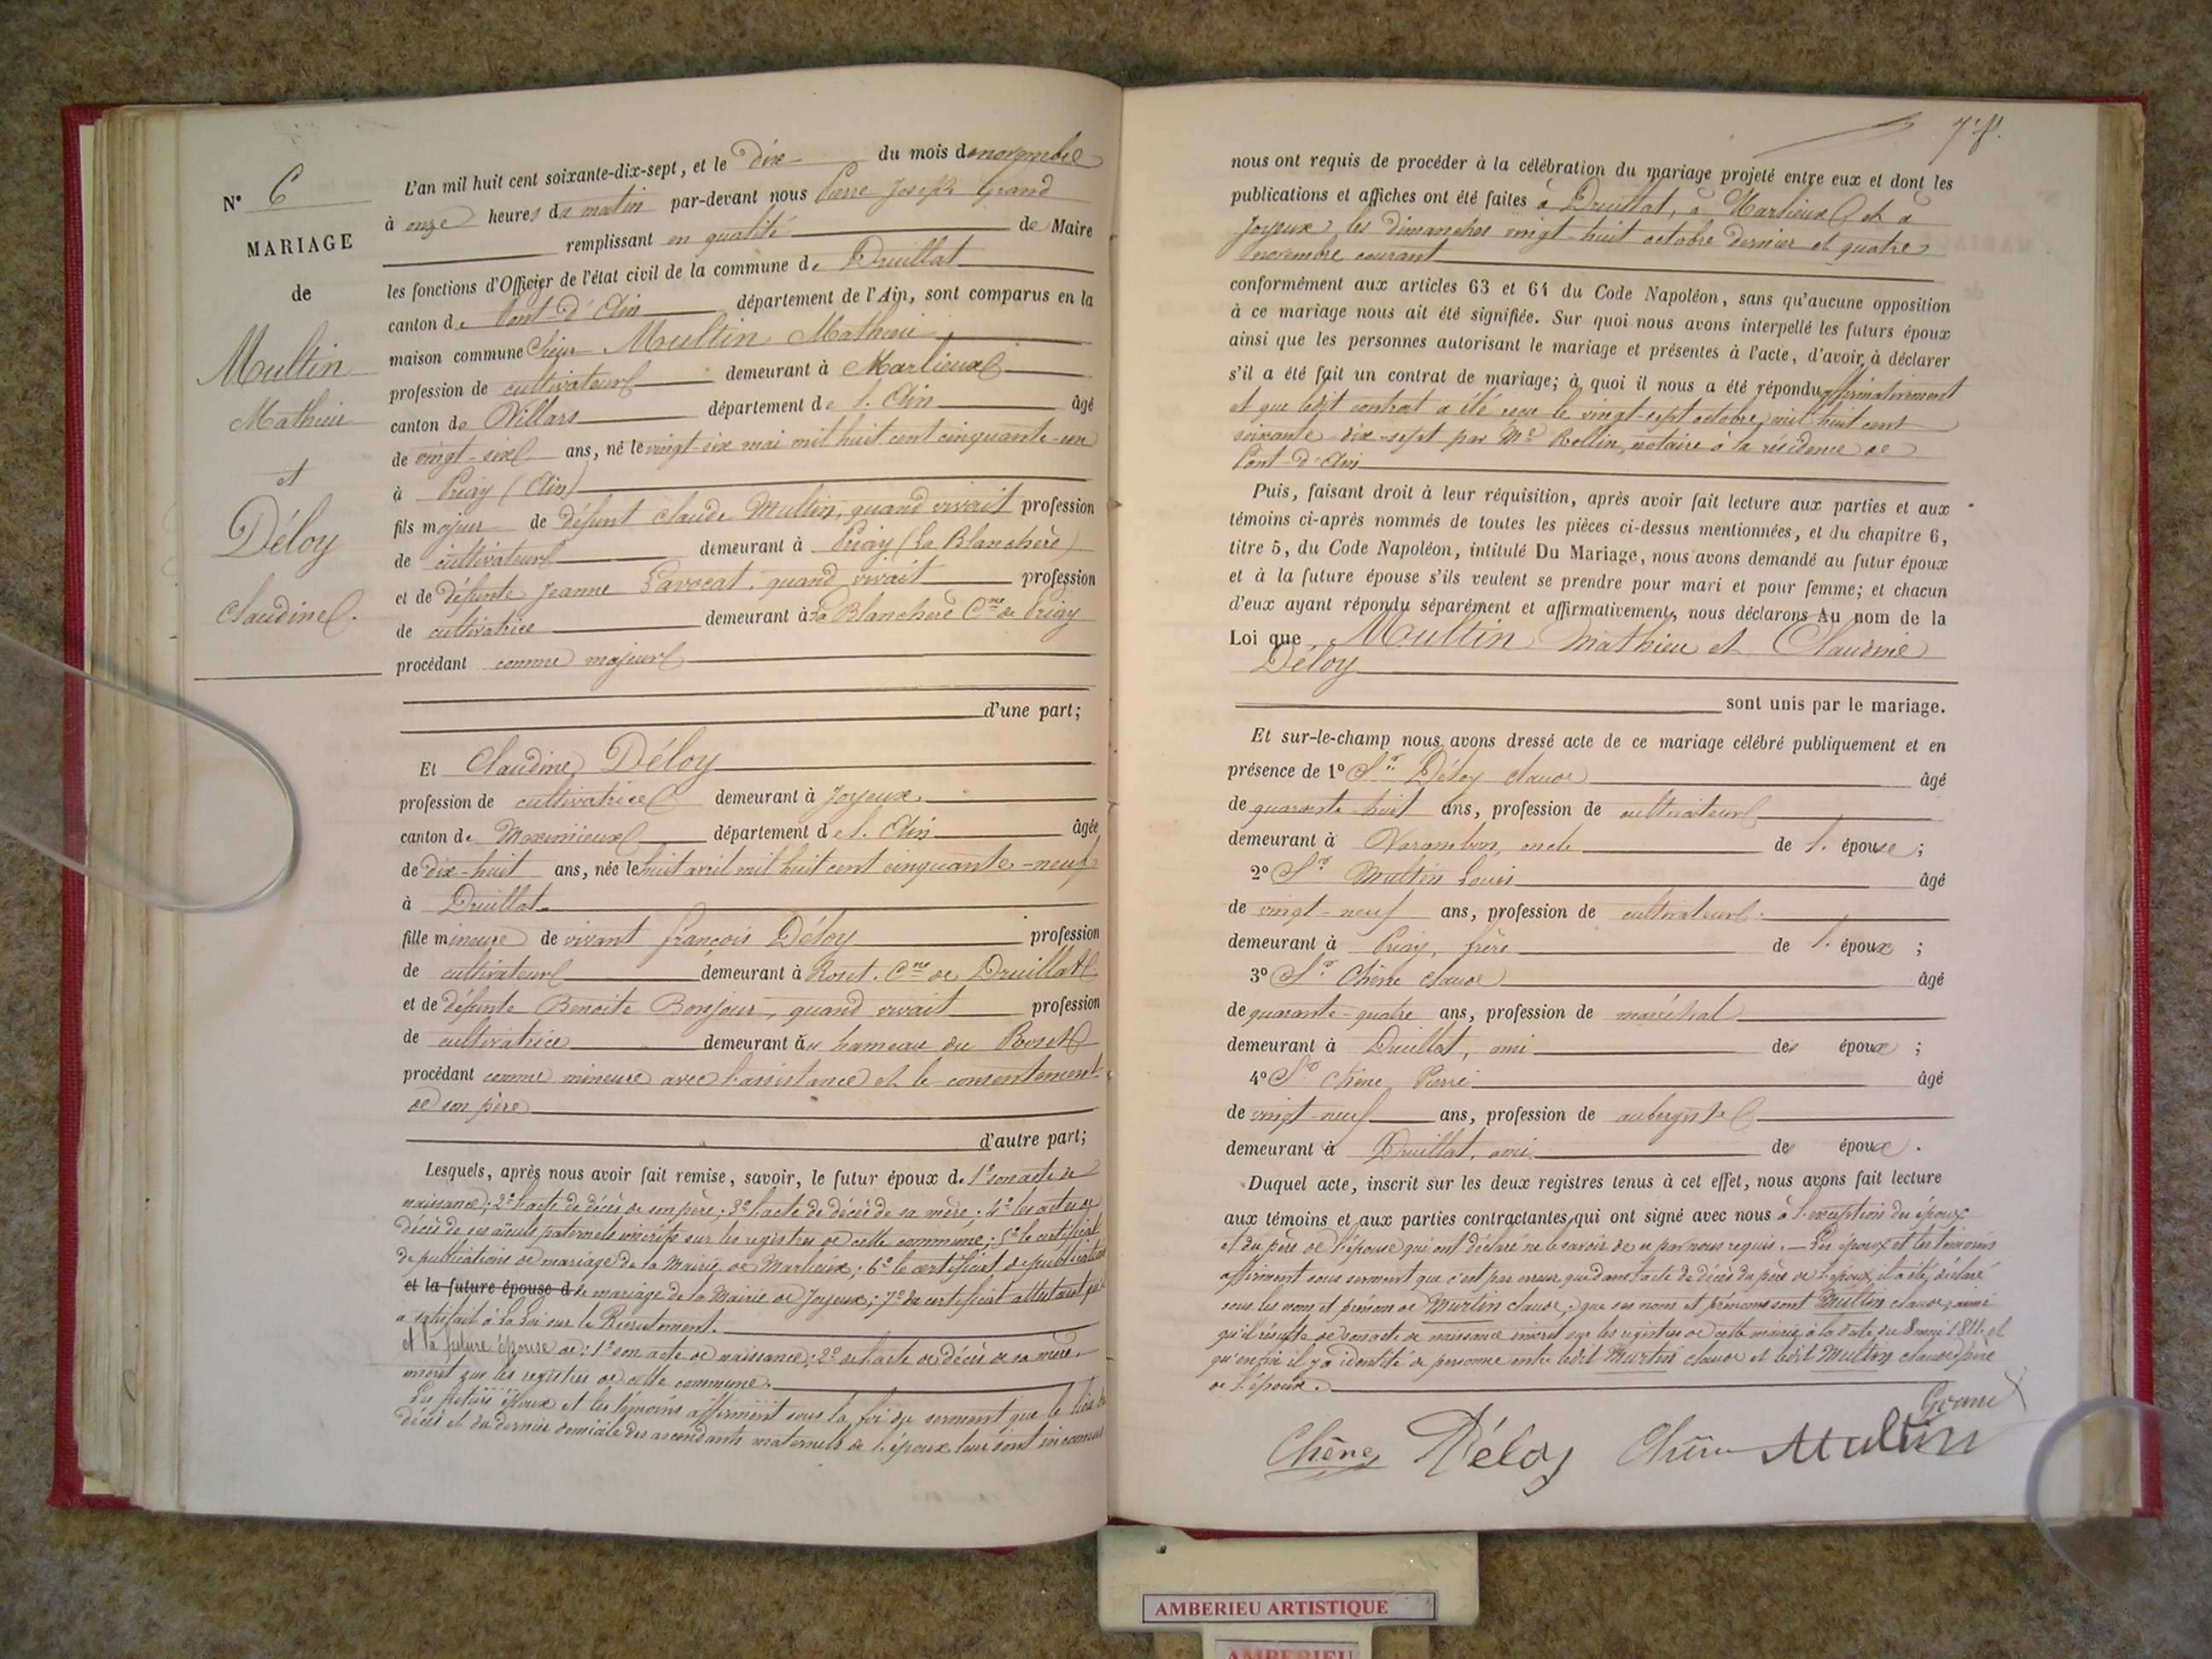 N° 6
MARIAGE
de
Multin
Mathieu
et
Déloy
Claudine.
L'an mil huit cent soixante-dix-sept, et le dix du mois de novembre
à onze heures du matin par-devant nous Pierre Joseph Grand
remplissant en qualité de Maire
les fonctions d'Officier de l'état civil de la commune de Druillat
canton de Pont-d'Ain département de l'Ain, sont comparus en la
maison commune Sieur Multin Mathieu
profession de cultivateur demeurant à Marlieux
canton de Villars département de l'Ain âgé
de vingt-six ans, né le vingt-six mai mil huit cent cinquante-un
à Priay (Ain)
fils majeur de défunt Claude Multin, quand vivait profession
de cultivateur demeurant à Priay (La Blanchère)
et de défunte Jeanne Lavocat, quand vivait profession
de cultivatrice demeurant à La Blanchère Cne de Priay
procédant comme majeur
d'une part;
Et Claudine Déloy
profession de cultivatrice demeurant à Joyeux
canton de Meximieux département de l'Ain âgée
de dix-huit ans, née le huit avril mil huit cent cinquante-neuf
à Druillat
fille mineure de vivant françois Déloy profession
de cultivateur demeurant à Roset. Cne de Druillat
et de défunte Benoite Bonjour, quand vivait profession
de cultivatrice demeurant au hameau du Roset
procédant comme mineure avec l'assistance et le consentement
de son père
d'autre part;
Lesquels, après nous avoir fait remise, savoir, le futur époux de 1° son acte de
naissance; 2° l'acte de décès de son père; 3° l'acte de décès de sa mère; 4° les actes de
décès de ses aïeuls paternels inscrits sur les registres de cette commune; 5° le certificat
de publications de mariage de la Mairie de Marlieux; 6° le certificat de publications
et la future épouse d de mariage de la Mairie de Joyeux; 7° du certificat attestant qu'il
a satisfait à la Loi sur le Recrutement.
et la future épouse de: 1° son acte de naissance; 2° de l'acte de décès de sa mère
inscrit sur les registres de cette commune.
Les futurs époux et les témoins affirment sous la foi du serment que le lieu du
décès et du dernier domicile des ascendants maternels de l'époux leur sont inconnus
7 f.
nous ont requis de procéder à la célébration du mariage projeté entre eux et dont les
publications et affiches ont été faites à Druillat, à Marlieux et à
Joyeux, les Dimanches vingt-huit octobre dernier et quatre
novembre courant
conformément aux articles 63 et 64 du Code Napoléon, sans qu'aucune opposition
à ce mariage nous ait été signifiée. Sur quoi nous avons interpellé les futurs époux
ainsi que les personnes autorisant le mariage et présentes à l'acte, d'avoir à déclarer
s'il a été fait un contrat de mariage; à quoi il nous a été répondu affirmativement
et que ledit contrat a été reçu le vingt-sept octobre mil huit cent
soixante dix-sept par Me Rollin, notaire à la résidence de
Pont-d'Ain
Puis, faisant droit à leur réquisition, après avoir fait lecture aux parties et aux
témoins ci-après nommés de toutes les pièces ci-dessus mentionnées, et du chapitre 6,
titre 5, du Code Napoléon, intitulé Du Mariage, nous avons demandé au futur époux
et à la future épouse s'ils veulent se prendre pour mari et pour femme; et chacun
d'eux ayant répondu séparément et affirmativement, nous déclarons Au nom de la
Loi que Multin Mathieu et Claudine
Déloy
sont unis par le mariage.
Et sur-le-champ nous avons dressé acte de ce mariage célébré publiquement et en
présence de 1° Sr Déloy Claude âgé
de quarante-huit ans, profession de cultivateur
demeurant à Varambon, oncle de l'épouse;
2° Sr Multin Louis âgé
de vingt-neuf ans, profession de cultivateur
demeurant à Priay, frère de l'époux;
3° Sr Chêne Claude âgé
de quarante-quatre ans, profession de maréchal
demeurant à Druillat, ami des époux;
4° Sr Chêne Pierre âgé
de vingt-neuf ans, profession de aubergiste
demeurant à Druillat, ami des époux.
Duquel acte, inscrit sur les deux registres tenus à cet effet, nous avons fait lecture
aux témoins et aux parties contractantes, qui ont signé avec nous à l'exception des époux
et du père de l'épouse qui ont déclaré ne le savoir de ce par nous requis. — Les époux et les témoins
affirment sous serment que c'est par erreur que dans l'acte de décès du père de l'époux, il a été déclaré
sous les nom et prénom de Murtin Claude, que ses nom et prénoms sont Multin Claude, ainsi
qu'il résulte de son acte de naissance inscrit sur les registres de cette mairie à la date du 8 mai 1811 et
qu'enfin il y a identité de personne entre ledit Murtin Claude et ledit Multin Claude père
de l'époux.
Grand
Chêne Déloy Chêne Multin
AMBERIEU ARTISTIQUE
AMBERIEU